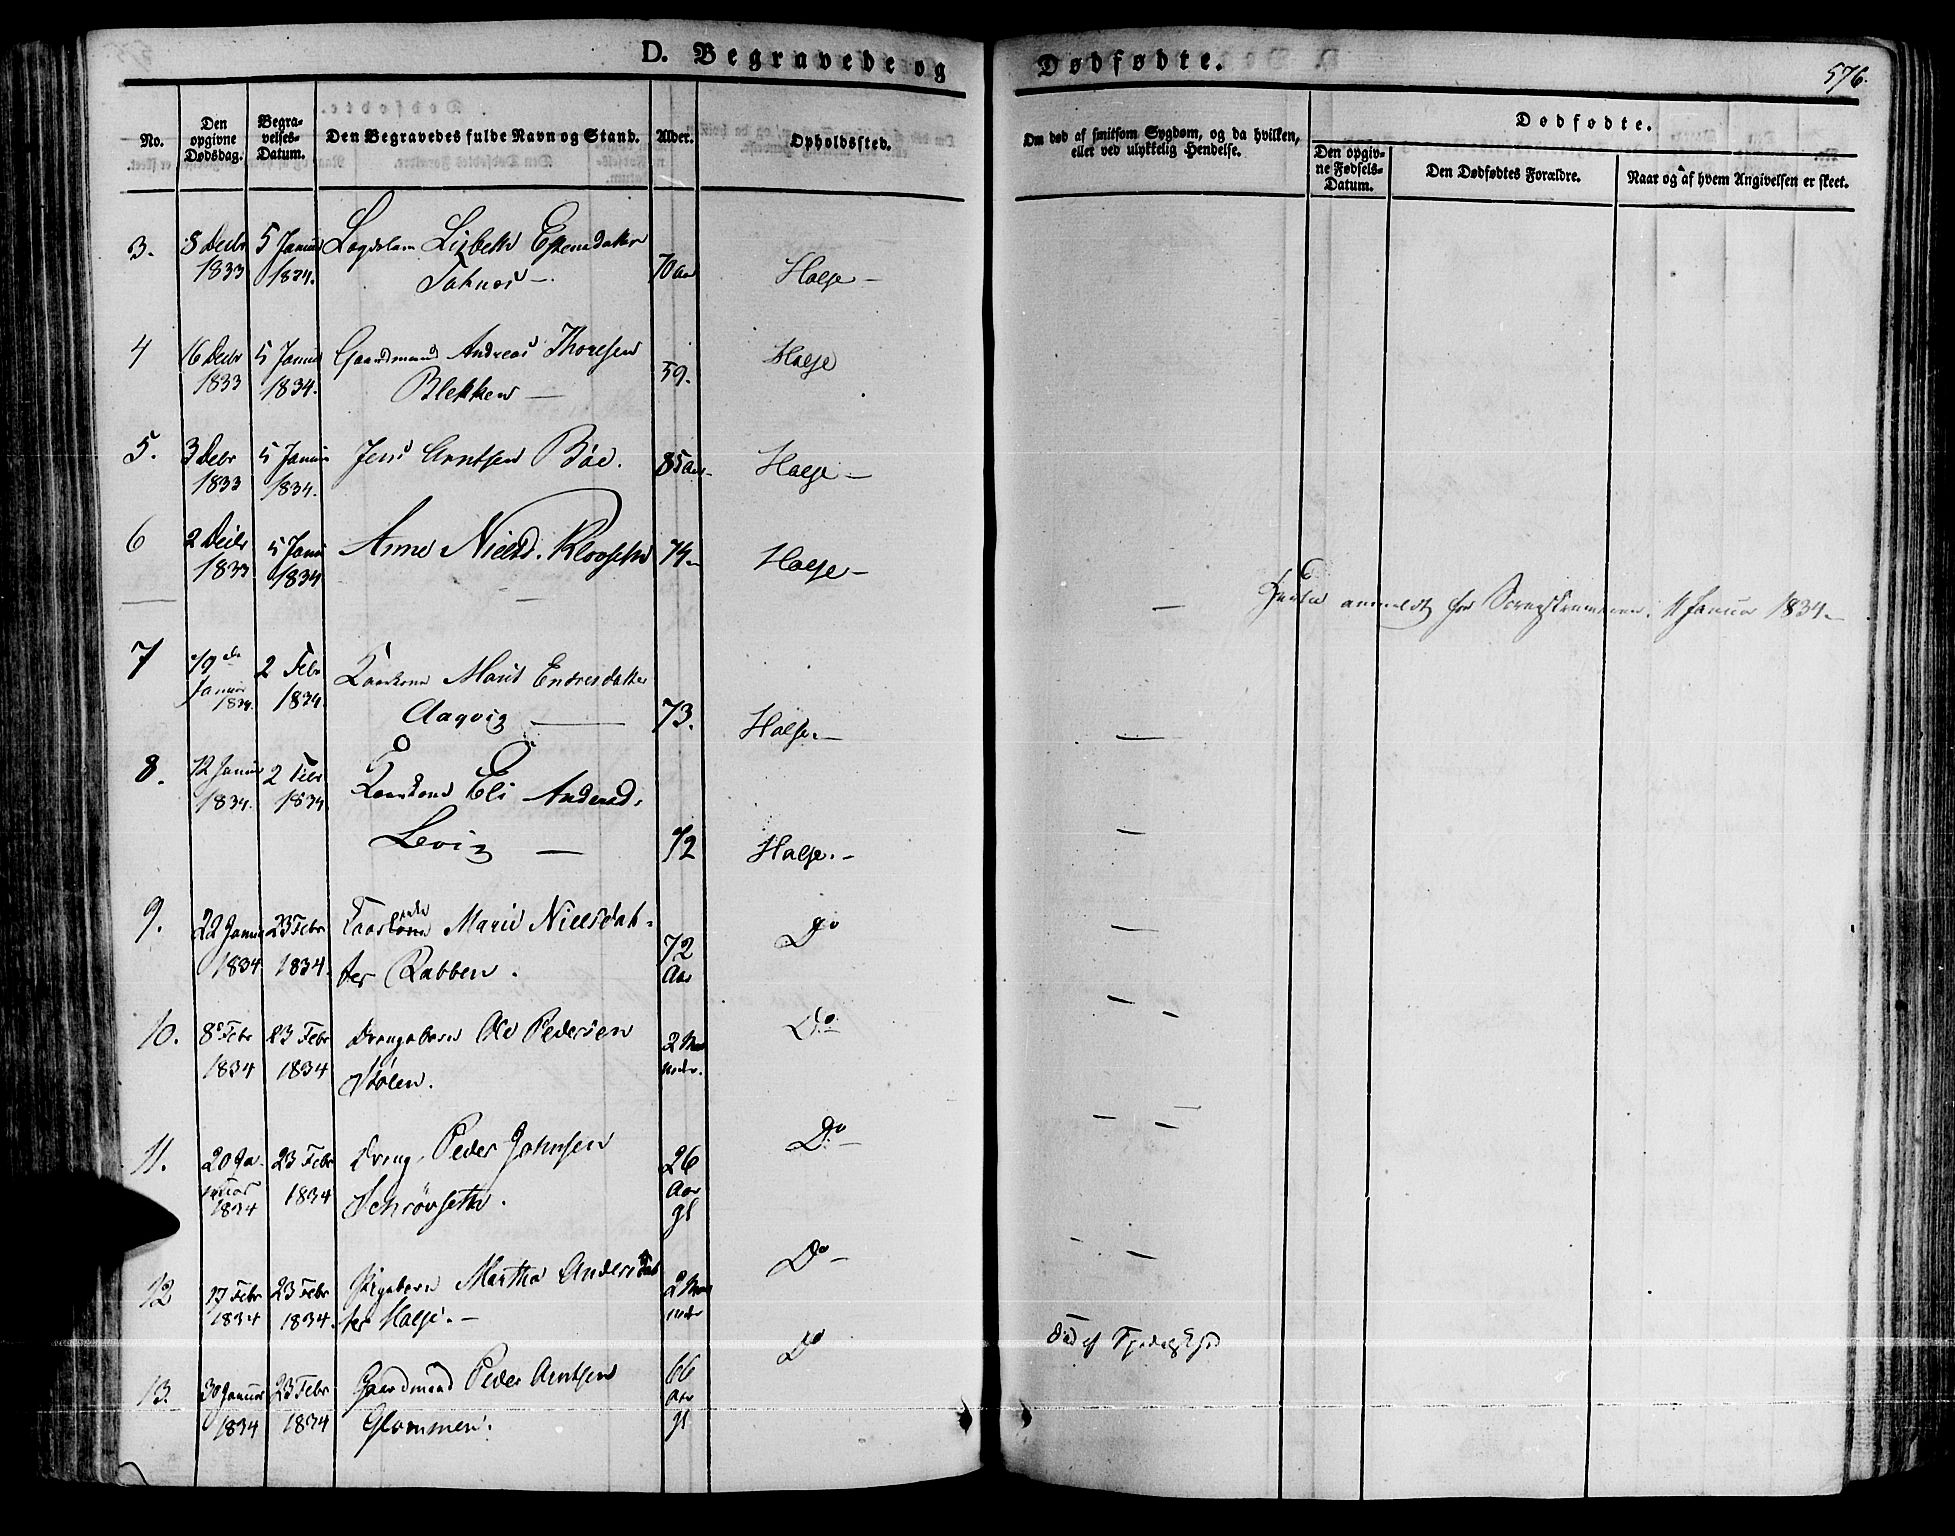 D. Begravede og Dødfødte.
576.
No.
Den opgivne Dødsdag.
Begravelses-Datum.
Den Begravedes fulde Navn og Stand.
Alder.
Opholdssted.
Om død af smitsom Sygdom, og da hvilken,
eller ved ulykkelig Hendelse.
Dødfødte.
Den opgivne Fødsels-Datum.
Den Dødfødtes Forældre.
Naar og af hvem Angivelsen er skeet.
3. 8 Decbr 5 Januar Lisbeth
1833 1834. 70 Aar Halse –
4 16 Decbr 5 Januar Gaardmand Andreas Thoresen Halse
1833 1834. Blekken — 59.
5. 3 Decbr 5 Januar Jens Arntsen Bøe. 85 Aar Halse –
1833 1834.
6 2 Decbr 5 Janu Anne Nielsd. 74 – Halse –
1833 1834
– anmeldt for 11 Januar 1834 –
7 19de 2 Febr Marit Endresdatter
Januar 1834. 1834. Aagvig — 73. Halse. –
8. 12 Januar 2 Febr Eli Andersd.
1834. 1834 Levig — 72 Halse. –
9. 22 Janua 23 Febr Marit Nielsdat- Do
1834 1834. ter Rabben. 72 Aar
10. 8de Febr 23 Febr Drengebarn Ole Pedersen 2 Maa Do –
1834 1834 Stølen. neder.
11. 20 Ja- 23 Febr Dreng Peder Johnsen 26 Do –
nuar 1834 1834 Schrøvseth. Aar gl
12 17 Febr 23 Febr Pigebarn Martha Andersdat 2 Maa Do –
1834 1834. ter Halse. – neder
Død af
13. 30 Januar 23 Febr Gaardmand Peder Arntsen 66 Do
1834 1834 Glommen. Aar gl